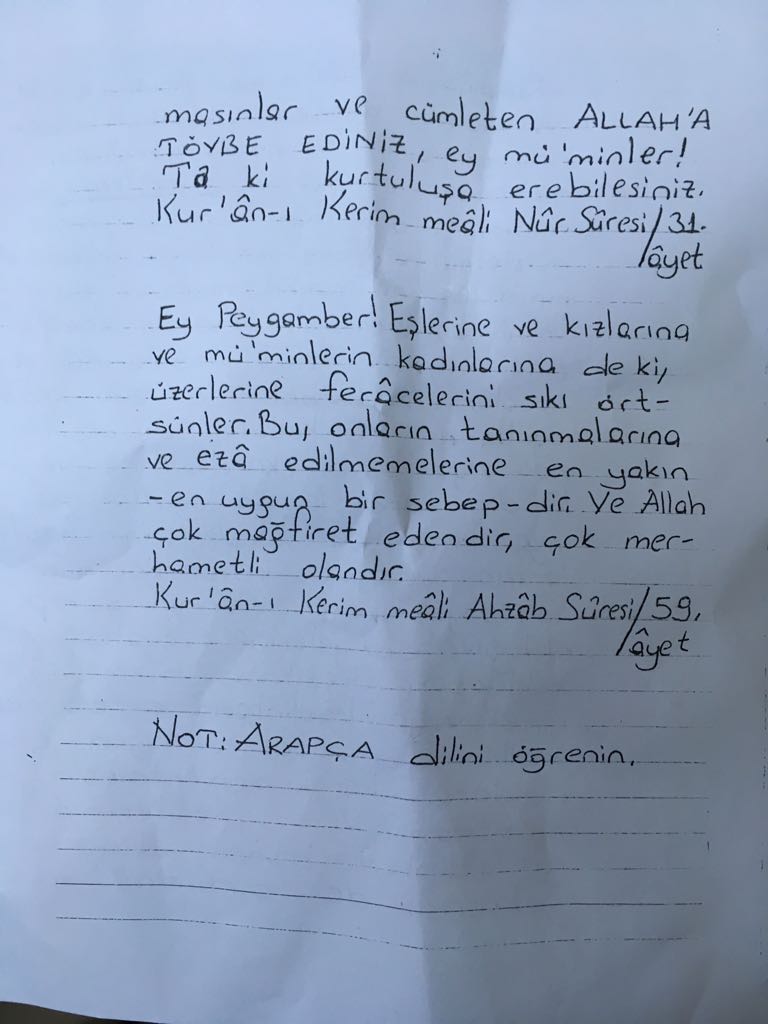 masınlar ve cümleten ALLAH'A
TÖVBE EDİNİZ, ey mü'minler!
Ta ki kurtuluşa erebilesiniz.
Kur'ân-ı Kerim meâli Nûr Sûresi/31.
âyet
Ey Peygamber! Eşlerine ve kızlarına
ve mü'minlerin kadınlarına de ki,
üzerlerine ferâcelerini sıkı ört-
sünler. Bu, onların tanınmalarına
ve ezâ edilmemelerine en yakın
-en uygun bir sebep-dir. Ve Allah
çok mağfiret edendir, çok mer-
hametli olandır.
Kur'ân-ı Kerim meâli Ahzâb Sûresi/59.
âyet
NOT: ARAPÇA dilini öğrenin.